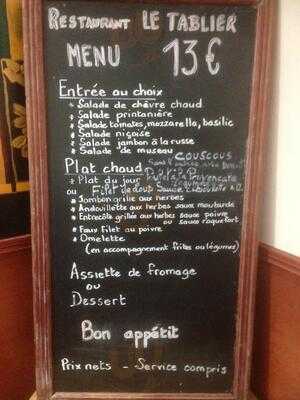 Restaurant LE TABLIER
MENU 13€
Entrée au choix
* Salade de chèvre chaud
* Salade printanière
* Salade tomates, mozzarella, basilic
* Salade niçoise
* Salade jambon à la russe
* Salade de museau
Plat chaud COUSCOUS
* Plat du jour Provençale
légumes
ou Filet de loup Sauce
* Jambon grillé aux herbes
* Andouillette aux herbes sauce moutarde
* Entrecôte grillée aux herbes sauce poivre
ou sauce roquefort
* Faux Filet au poivre
* Omelette
(en accompagnement frites ou légumes)
Assiette de fromage
ou
Dessert
Bon appétit
Prix nets - Service compris